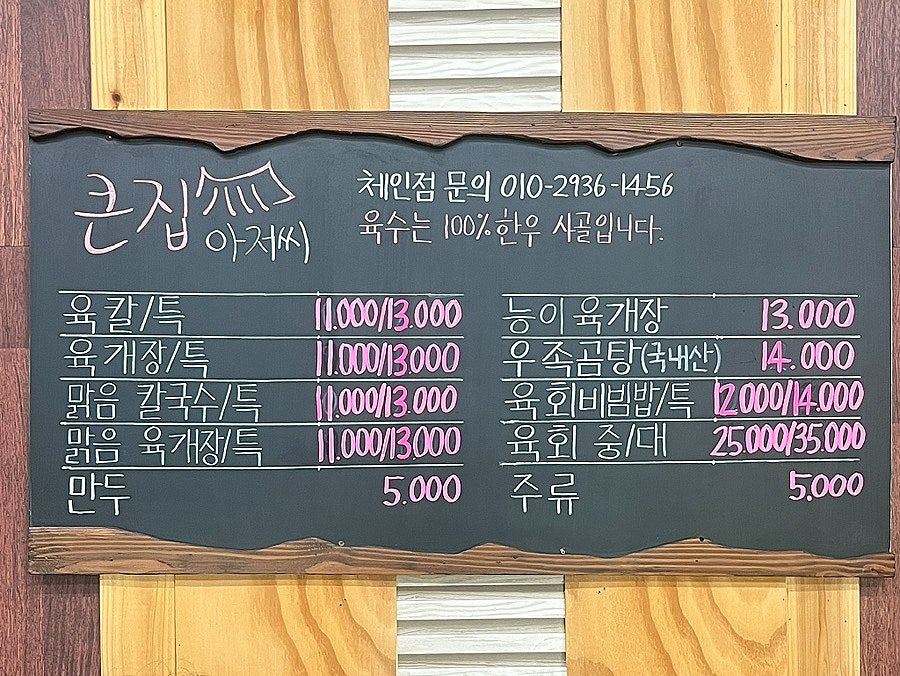 큰집
아저씨
체인점 문의 010-2936-1456
육수는 100% 한우 사골입니다.
육칼/특 11.000/13.000
육개장/특 11.000/13.000
맑음 칼국수/특 11.000/13.000
맑음 육개장/특 11.000/13.000
만두 5.000
능이 육개장 13.000
우족곰탕(국내산) 14.000
육회비빔밥/특 12.000/14.000
육회 중/대 25.000/35.000
주류 5.000